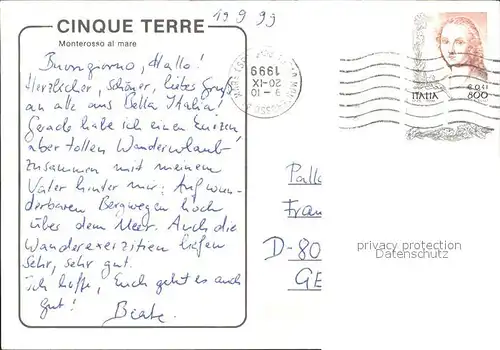 19 9 99
CINQUE TERRE
Monterosso al mare
Buongiorno, Hallo!
Herzlicher, schöner, liebes Gruß
an alle aus Bella Italia!
Gerade habe ich einen kurzen,
aber tollen Wanderurlaub
zusammen mit meinem
Vater hinter mir: Auf wun-
derbaren Bergwegen hoch
über dem Meer. Auch die
Wanderexerzitien liefen
sehr, sehr gut.
Ich hoffe, Euch geht es auch
gut! Beate.
9-10
20-IX
1999
ITALIA
800
Palla
Fran
D-80
GE
privacy protection
Datenschutz